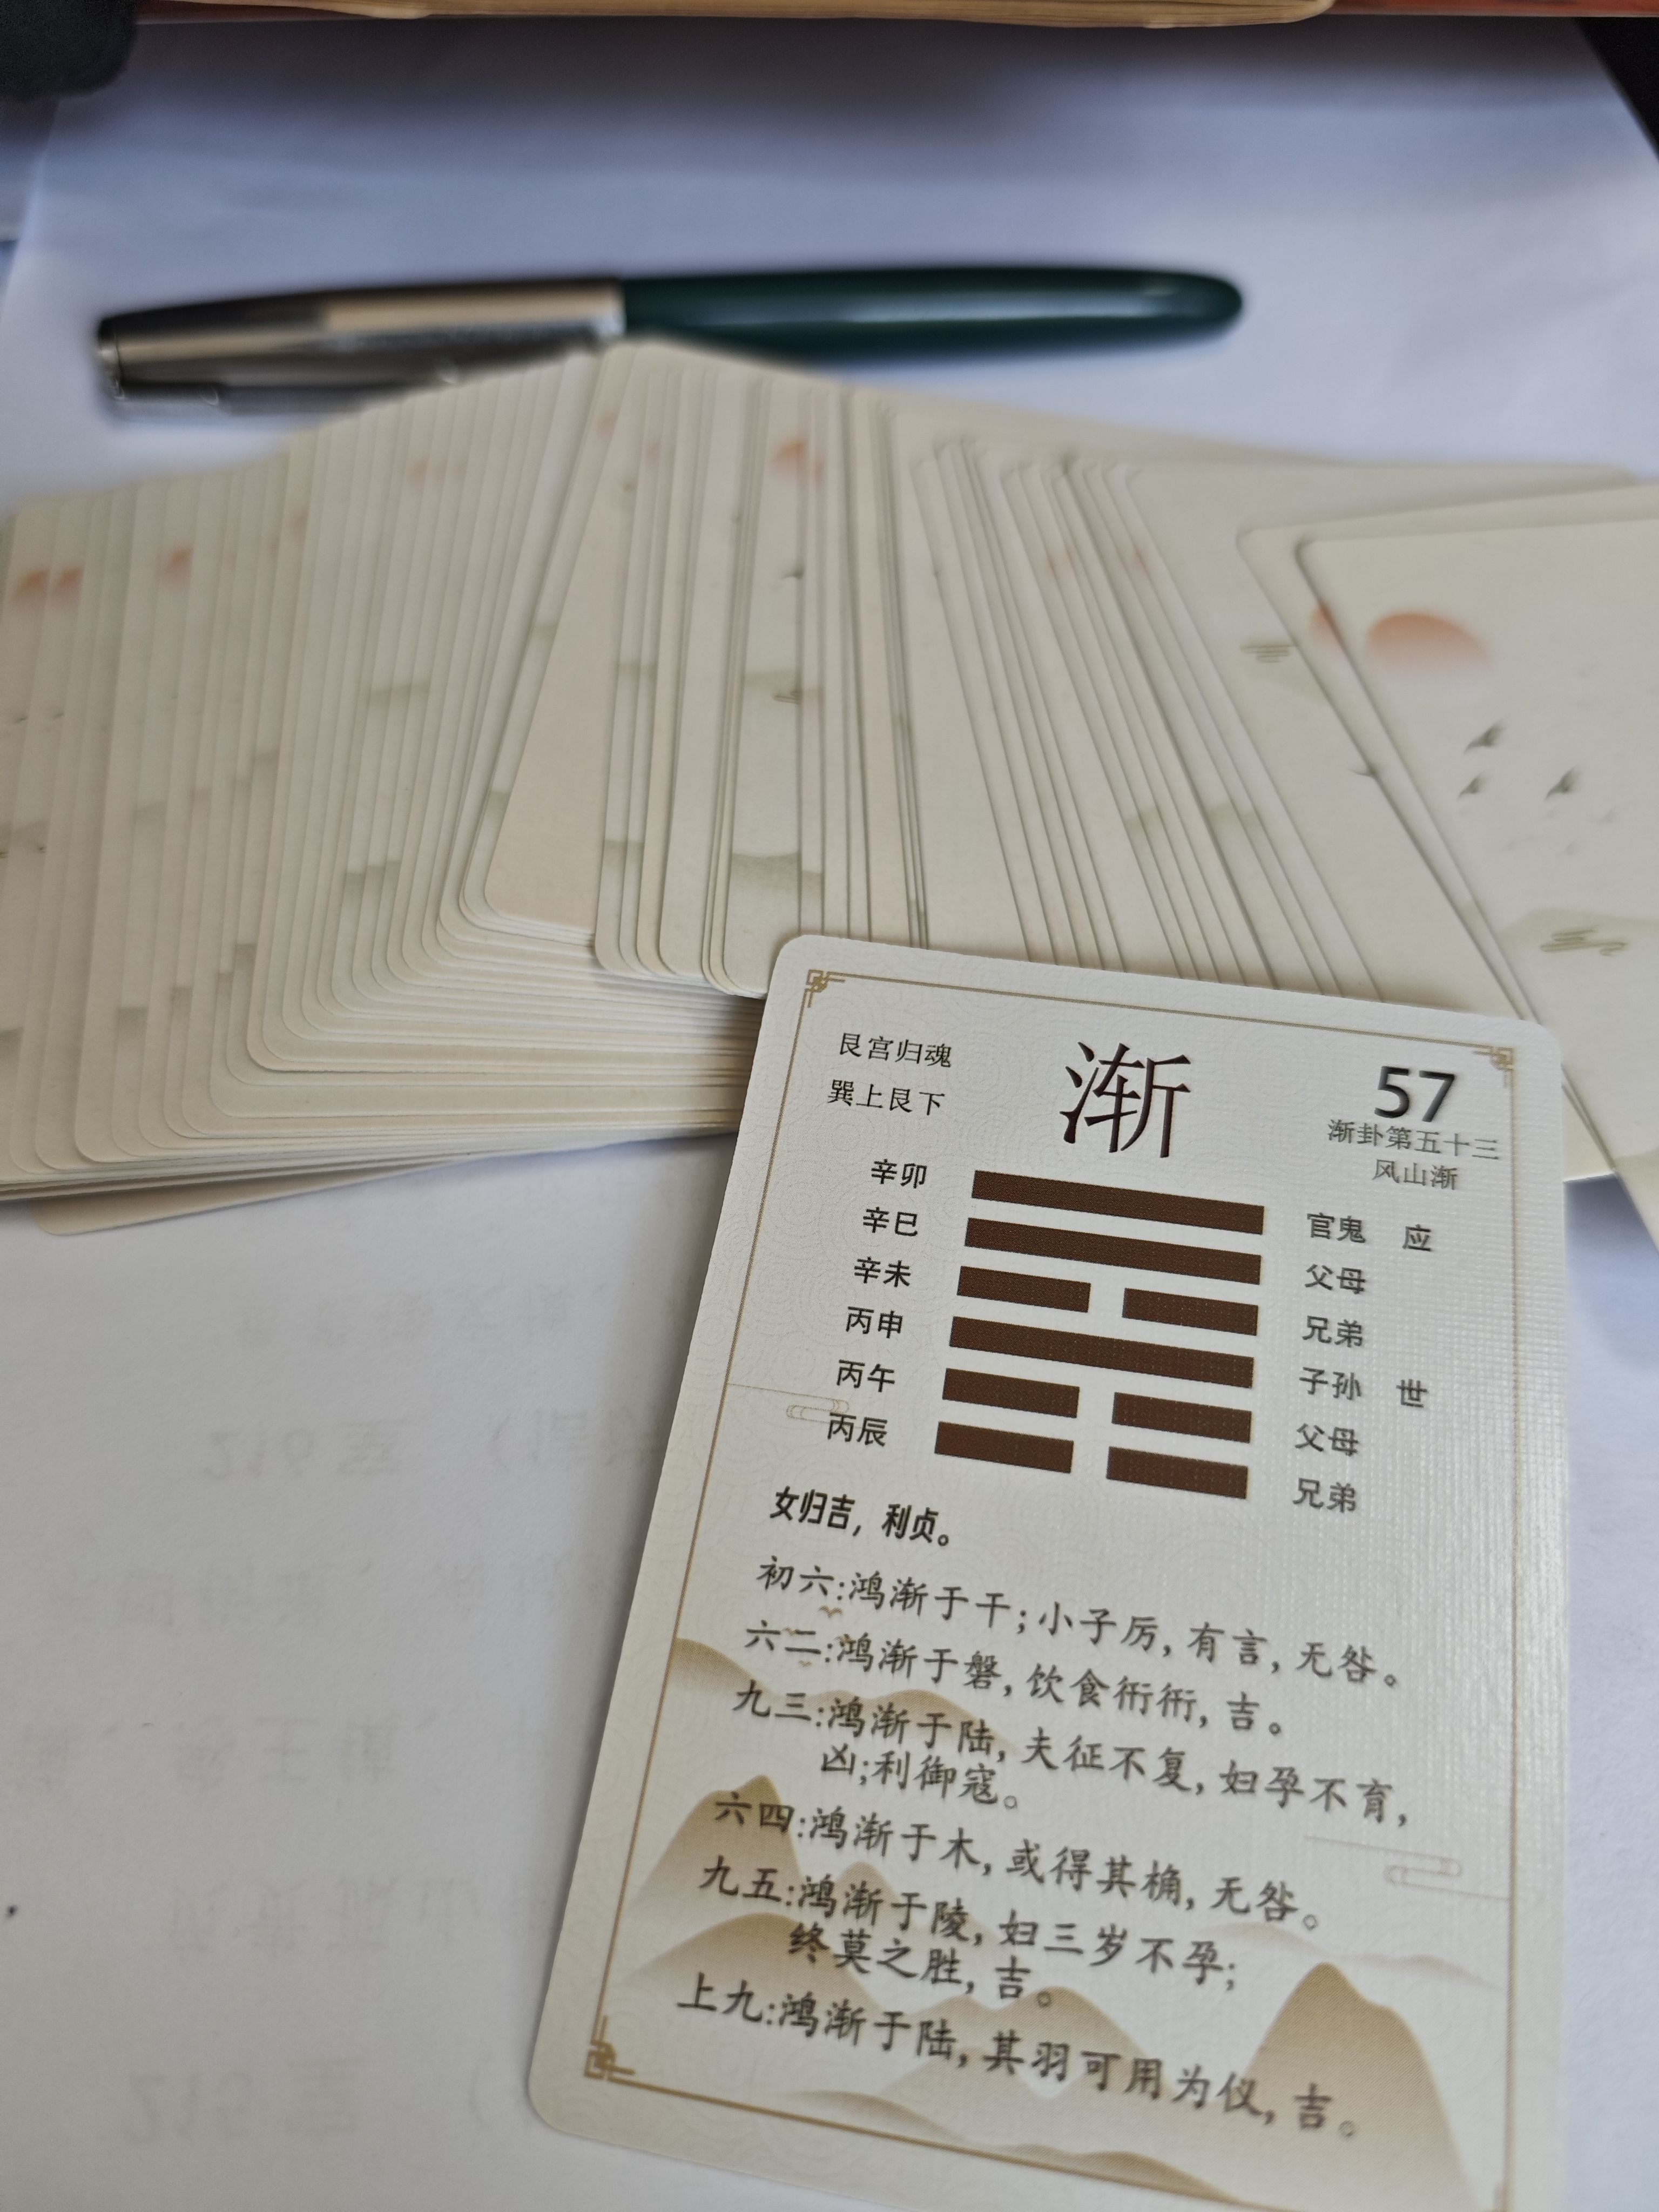 艮宫归魂
巽上艮下
渐
57
渐卦第五十三
风山渐
辛卯 官鬼 应
辛巳 父母
辛未 兄弟
丙申 子孙 世
丙午 父母
丙辰 兄弟
女归吉，利贞。
初六:鸿渐于干;小子厉,有言,无咎。
六二:鸿渐于磐,饮食衎衎,吉。
九三:鸿渐于陆,夫征不复,妇孕不育,
凶;利御寇。
六四:鸿渐于木,或得其桷,无咎。
九五:鸿渐于陵,妇三岁不孕;
终莫之胜,吉。
上九:鸿渐于陆,其羽可用为仪,吉。